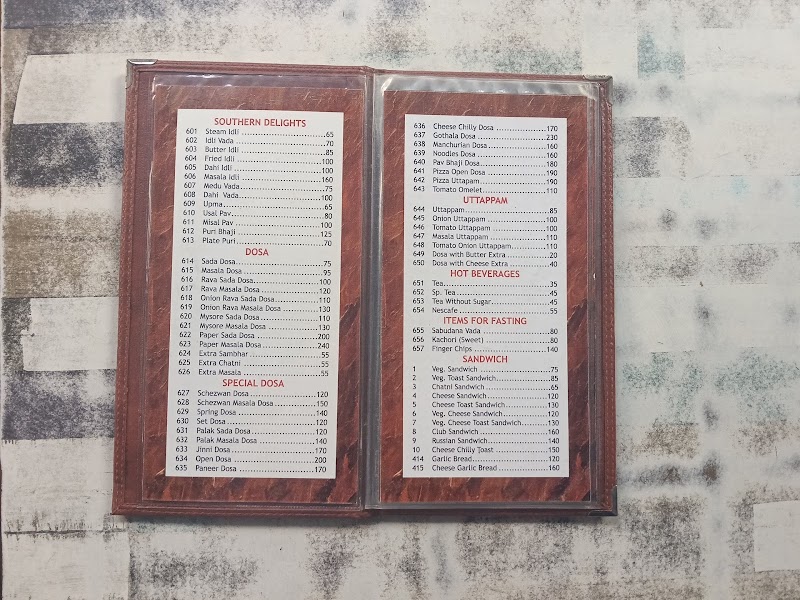 SOUTHERN DELIGHTS
601 Steam Idli 65
602 Idli Vada 70
603 Butter Idli 85
604 Fried Idli 100
605 Dahi Idli 100
606 Masala Idli 160
607 Medu Vada 75
608 Dahi Vada 100
609 Upma 65
610 Usal Pav 80
611 Misal Pav 100
612 Puri Bhaji 125
613 Plate Puri 70
DOSA
614 Sada Dosa 75
615 Masala Dosa 95
616 Rava Sada Dosa 100
617 Rava Masala Dosa 120
618 Onion Rava Sada Dosa 110
619 Onion Rava Masala Dosa 130
620 Mysore Sada Dosa 110
621 Mysore Masala Dosa 130
622 Paper Sada Dosa 200
623 Paper Masala Dosa 240
624 Extra Sambhar 55
625 Extra Chatni 55
626 Extra Masala 55
SPECIAL DOSA
627 Schezwan Dosa 120
628 Schezwan Masala Dosa 150
629 Spring Dosa 140
630 Set Dosa 120
631 Palak Sada Dosa 120
632 Palak Masala Dosa 140
633 Jinni Dosa 170
634 Open Dosa 200
635 Paneer Dosa 170
636 Cheese Chilly Dosa 170
637 Gothala Dosa 230
638 Manchurian Dosa 160
639 Noodles Dosa 160
640 Pav Bhaji Dosa 180
641 Pizza Open Dosa 190
642 Pizza Uttapam 190
643 Tomato Omelet 110
UTTAPPAM
644 Uttappam 85
645 Onion Uttappam 100
646 Tomato Uttappam 100
647 Masala Uttappam 110
648 Tomato Onion Uttappam 110
649 Dosa with Butter Extra 20
650 Dosa with Cheese Extra 40
HOT BEVERAGES
651 Tea 35
652 Sp. Tea 45
653 Tea Without Sugar 45
654 Nescafe 55
ITEMS FOR FASTING
655 Sabudana Vada 80
656 Kachori (Sweet) 80
657 Finger Chips 140
SANDWICH
1 Veg. Sandwich 75
2 Veg. Toast Sandwich 85
3 Chatni Sandwich 65
4 Cheese Sandwich 120
5 Cheese Toast Sandwich 130
6 Veg. Cheese Sandwich 120
7 Veg. Cheese Toast Sandwich 130
8 Club Sandwich 160
9 Russian Sandwich 140
10 Cheese Chilly Toast 150
414 Garlic Bread 120
415 Cheese Garlic Bread 160